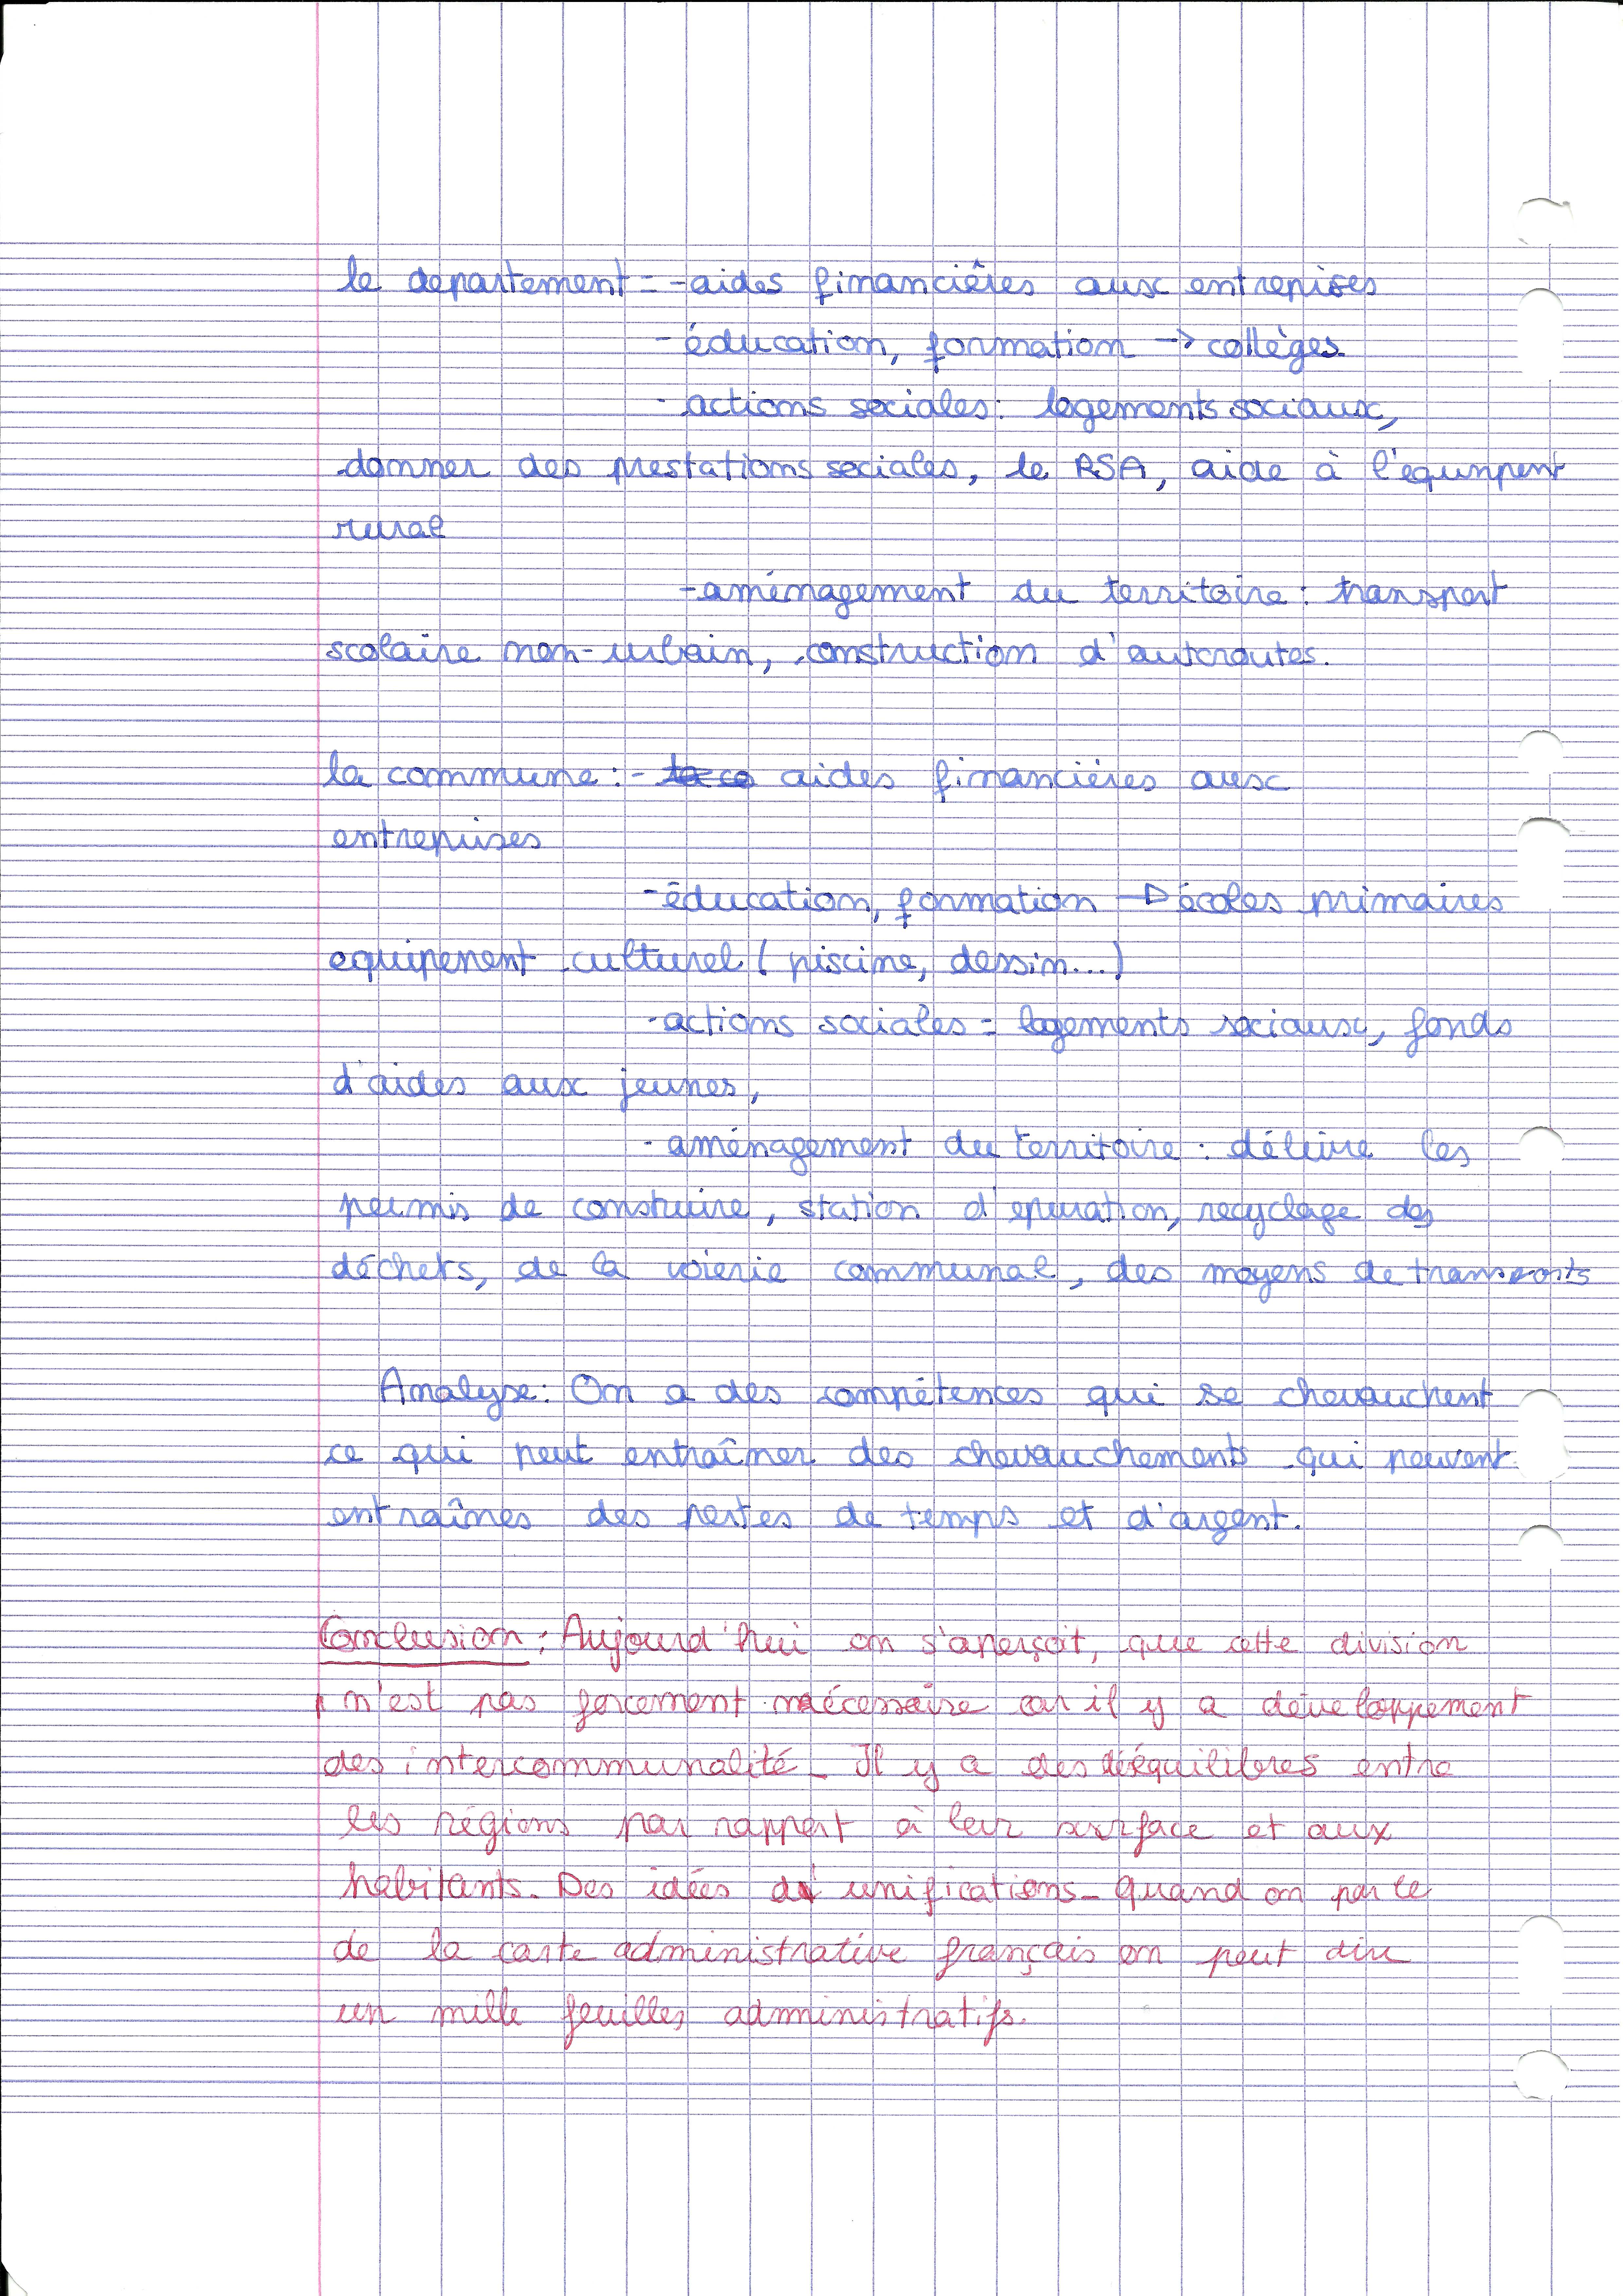 le departement = - aides financières aux entreprises
- éducation, formation → collèges.
- actions sociales : logements sociaux,
donner des prestations sociales, le RSA, aide à l'equinpent
rural
- aménagement du territoire : transport
scolaire non-urbain, construction d'autoroutes.
la commune : - aides financières aux
entreprises
- éducation, formation → écoles primaires
equipement culturel ( piscine, dessin...)
- actions sociales = logements sociaux, fonds
d'aides aux jeunes,
- aménagement du territoire : délivre les
permis de construire, station d'epuration, recyclage des
déchets, de la voierie communal, des moyens de transports
Analyse : On a des compétences qui se chevauchent
ce qui peut entraîner des chevauchements qui peuvent
entraînes des pertes de temps et d'argent.
Conclusion : Aujourd'hui on s'aperçoit, que cette division
n'est pas forcement nécessaire car il y a developpement
des intercommunalité. Il y a des déséquilibres entre
les régions par rapport à leur surface et aux
habitants. Des idées d' unifications. Quand on parle
de la carte administrative français on peut dire
un mille feuilles administratifs.